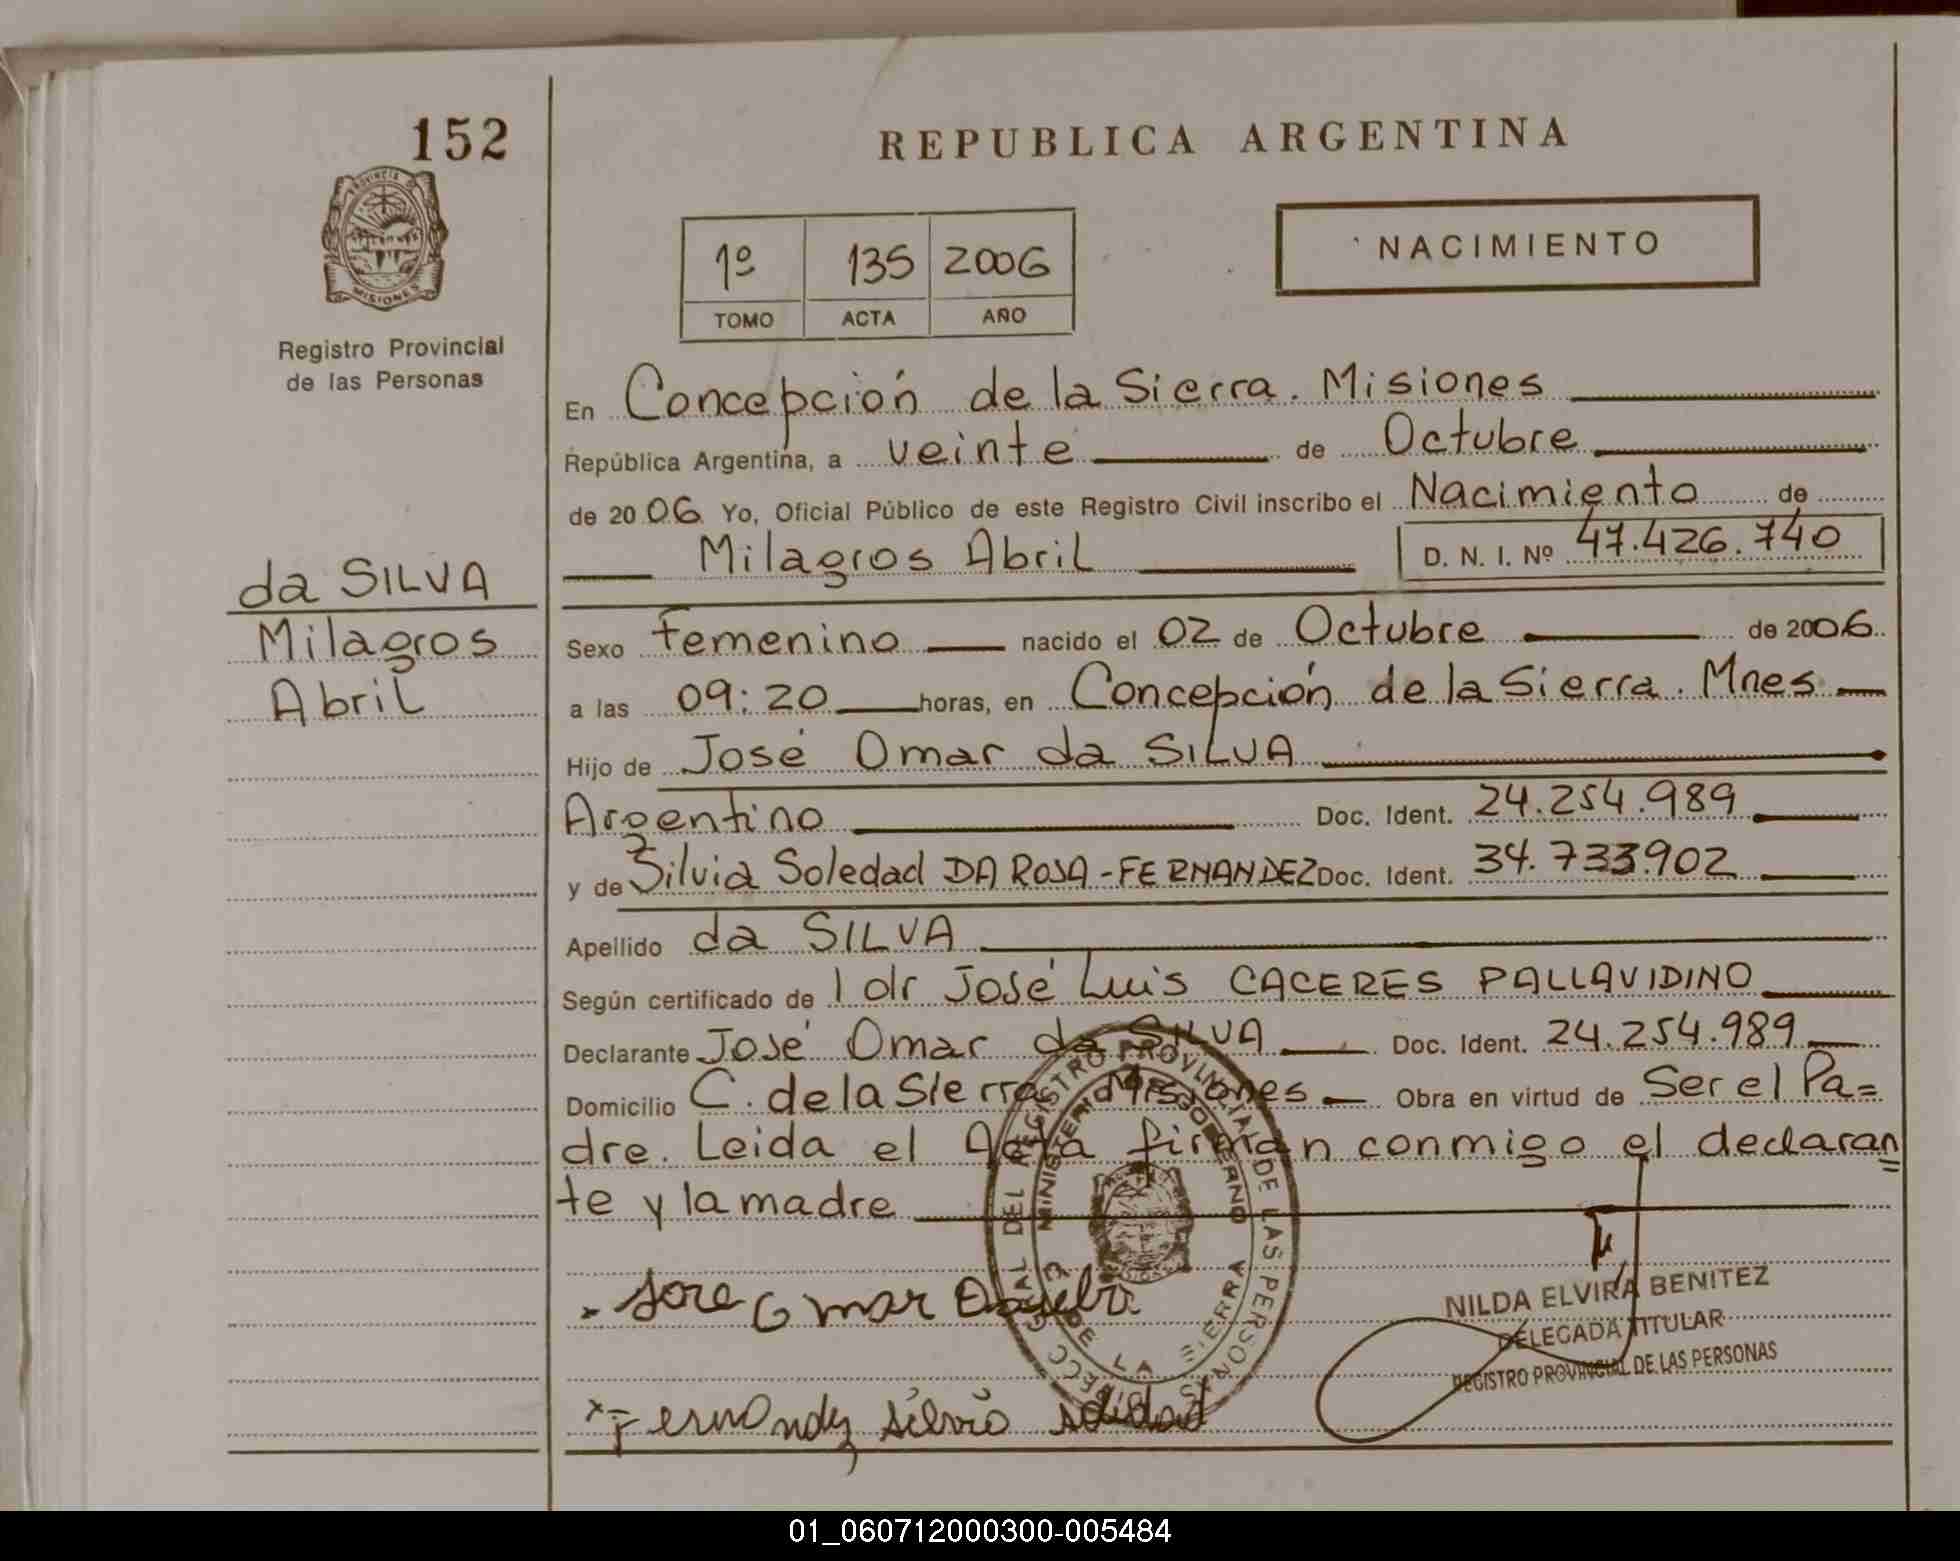 152
REPUBLICA ARGENTINA
PROVINCIA D
MISIONES
Registro Provincial
de las Personas
1º 135 2006
TOMO ACTA AÑO
NACIMIENTO
En Concepción de la Sierra. Misiones
República Argentina, a veinte de Octubre
de 2006 Yo, Oficial Público de este Registro Civil inscribo el Nacimiento de
Milagros Abril D. N. I. Nº 47.426.740
da SILVA
Milagros
Abril
Sexo Femenino nacido el 02 de Octubre de 2006
a las 09:20 horas, en Concepción de la Sierra. Mnes
Hijo de José Omar da SILVA
Argentino Doc. Ident. 24.254.989
y de Silvia Soledad DA ROSA-FERNANDEZ Doc. Ident. 34.733902
Apellido da SILVA
Según certificado de l dr José Luis CACERES PALLAVIDINO
Declarante José Omar da SILVA Doc. Ident. 24.254.989
Domicilio C. de la Sierra Misiones Obra en virtud de Ser el Pa=
dre. Leida el Acta firman conmigo el declaran=
te y la madre
GRAL DEL REGISTRO PROVINCIAL DE LAS PERSONAS
MINISTERIO DE GOBIERNO
DE LA SIERRA
Jose Omar Dasilva
NILDA ELVIRA BENITEZ
DELEGADA TITULAR
REGISTRO PROVINCIAL DE LAS PERSONAS
x Fernandez silvia soledad
01_060712000300-005484